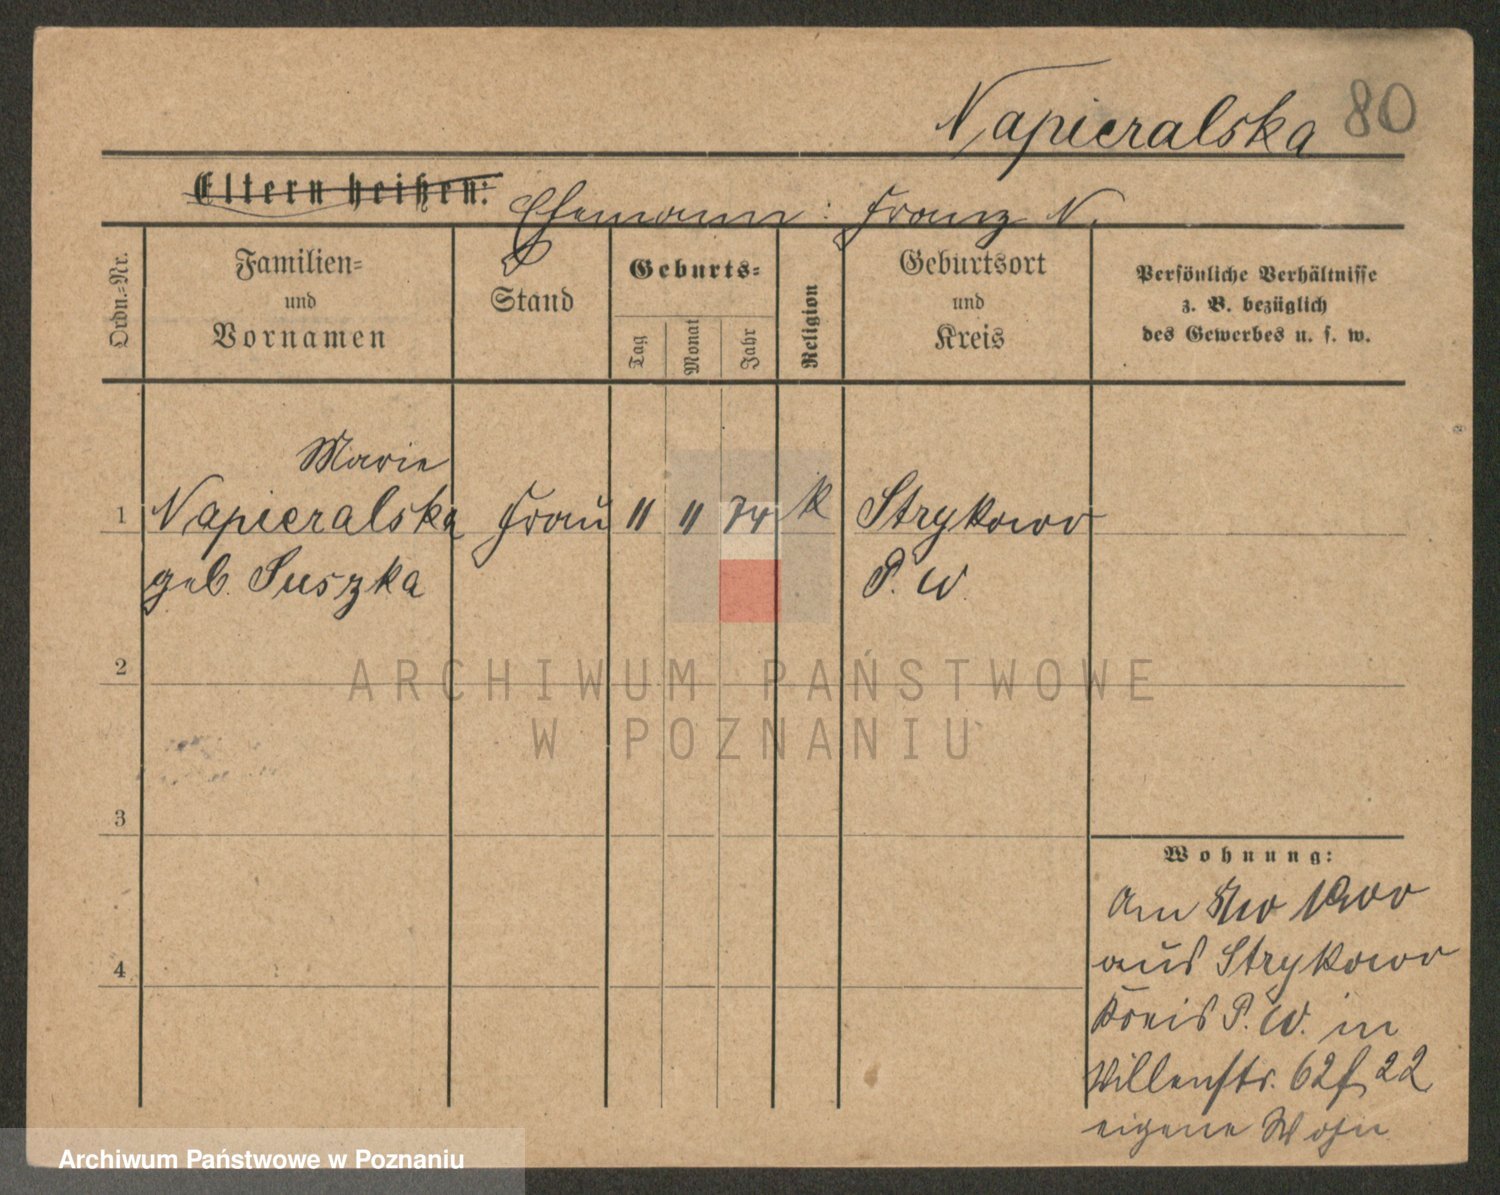 Napieralska 80
Eltern heißen: Ehemann: Franz N.
Ordn.-Nr.
Familien-
und
Vornamen
Stand
Geburts-
Tag
Monat
Jahr
Religion
Geburtsort
und
Kreis
Persönliche Verhältnisse
z. B. bezüglich
des Gewerbes u. s. w.
Marie
1 Napieralska Frau 11 11 74 k Strykowo
geb. Suszka P. W.
ARCHIWUM PAŃSTWOWE
W POZNANIU
2
3
4
Wohnung:
Am 1900
aus Strykowo
Kreis P. W. in
62 22
eigene Wohn
Archiwum Państwowe w Poznaniu